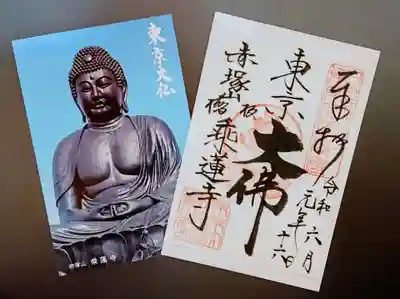 東京大仏
赤塚山 乗蓮寺
奉拝
令和元年六月
十六日
東京
大佛
赤塚山
乗蓮寺